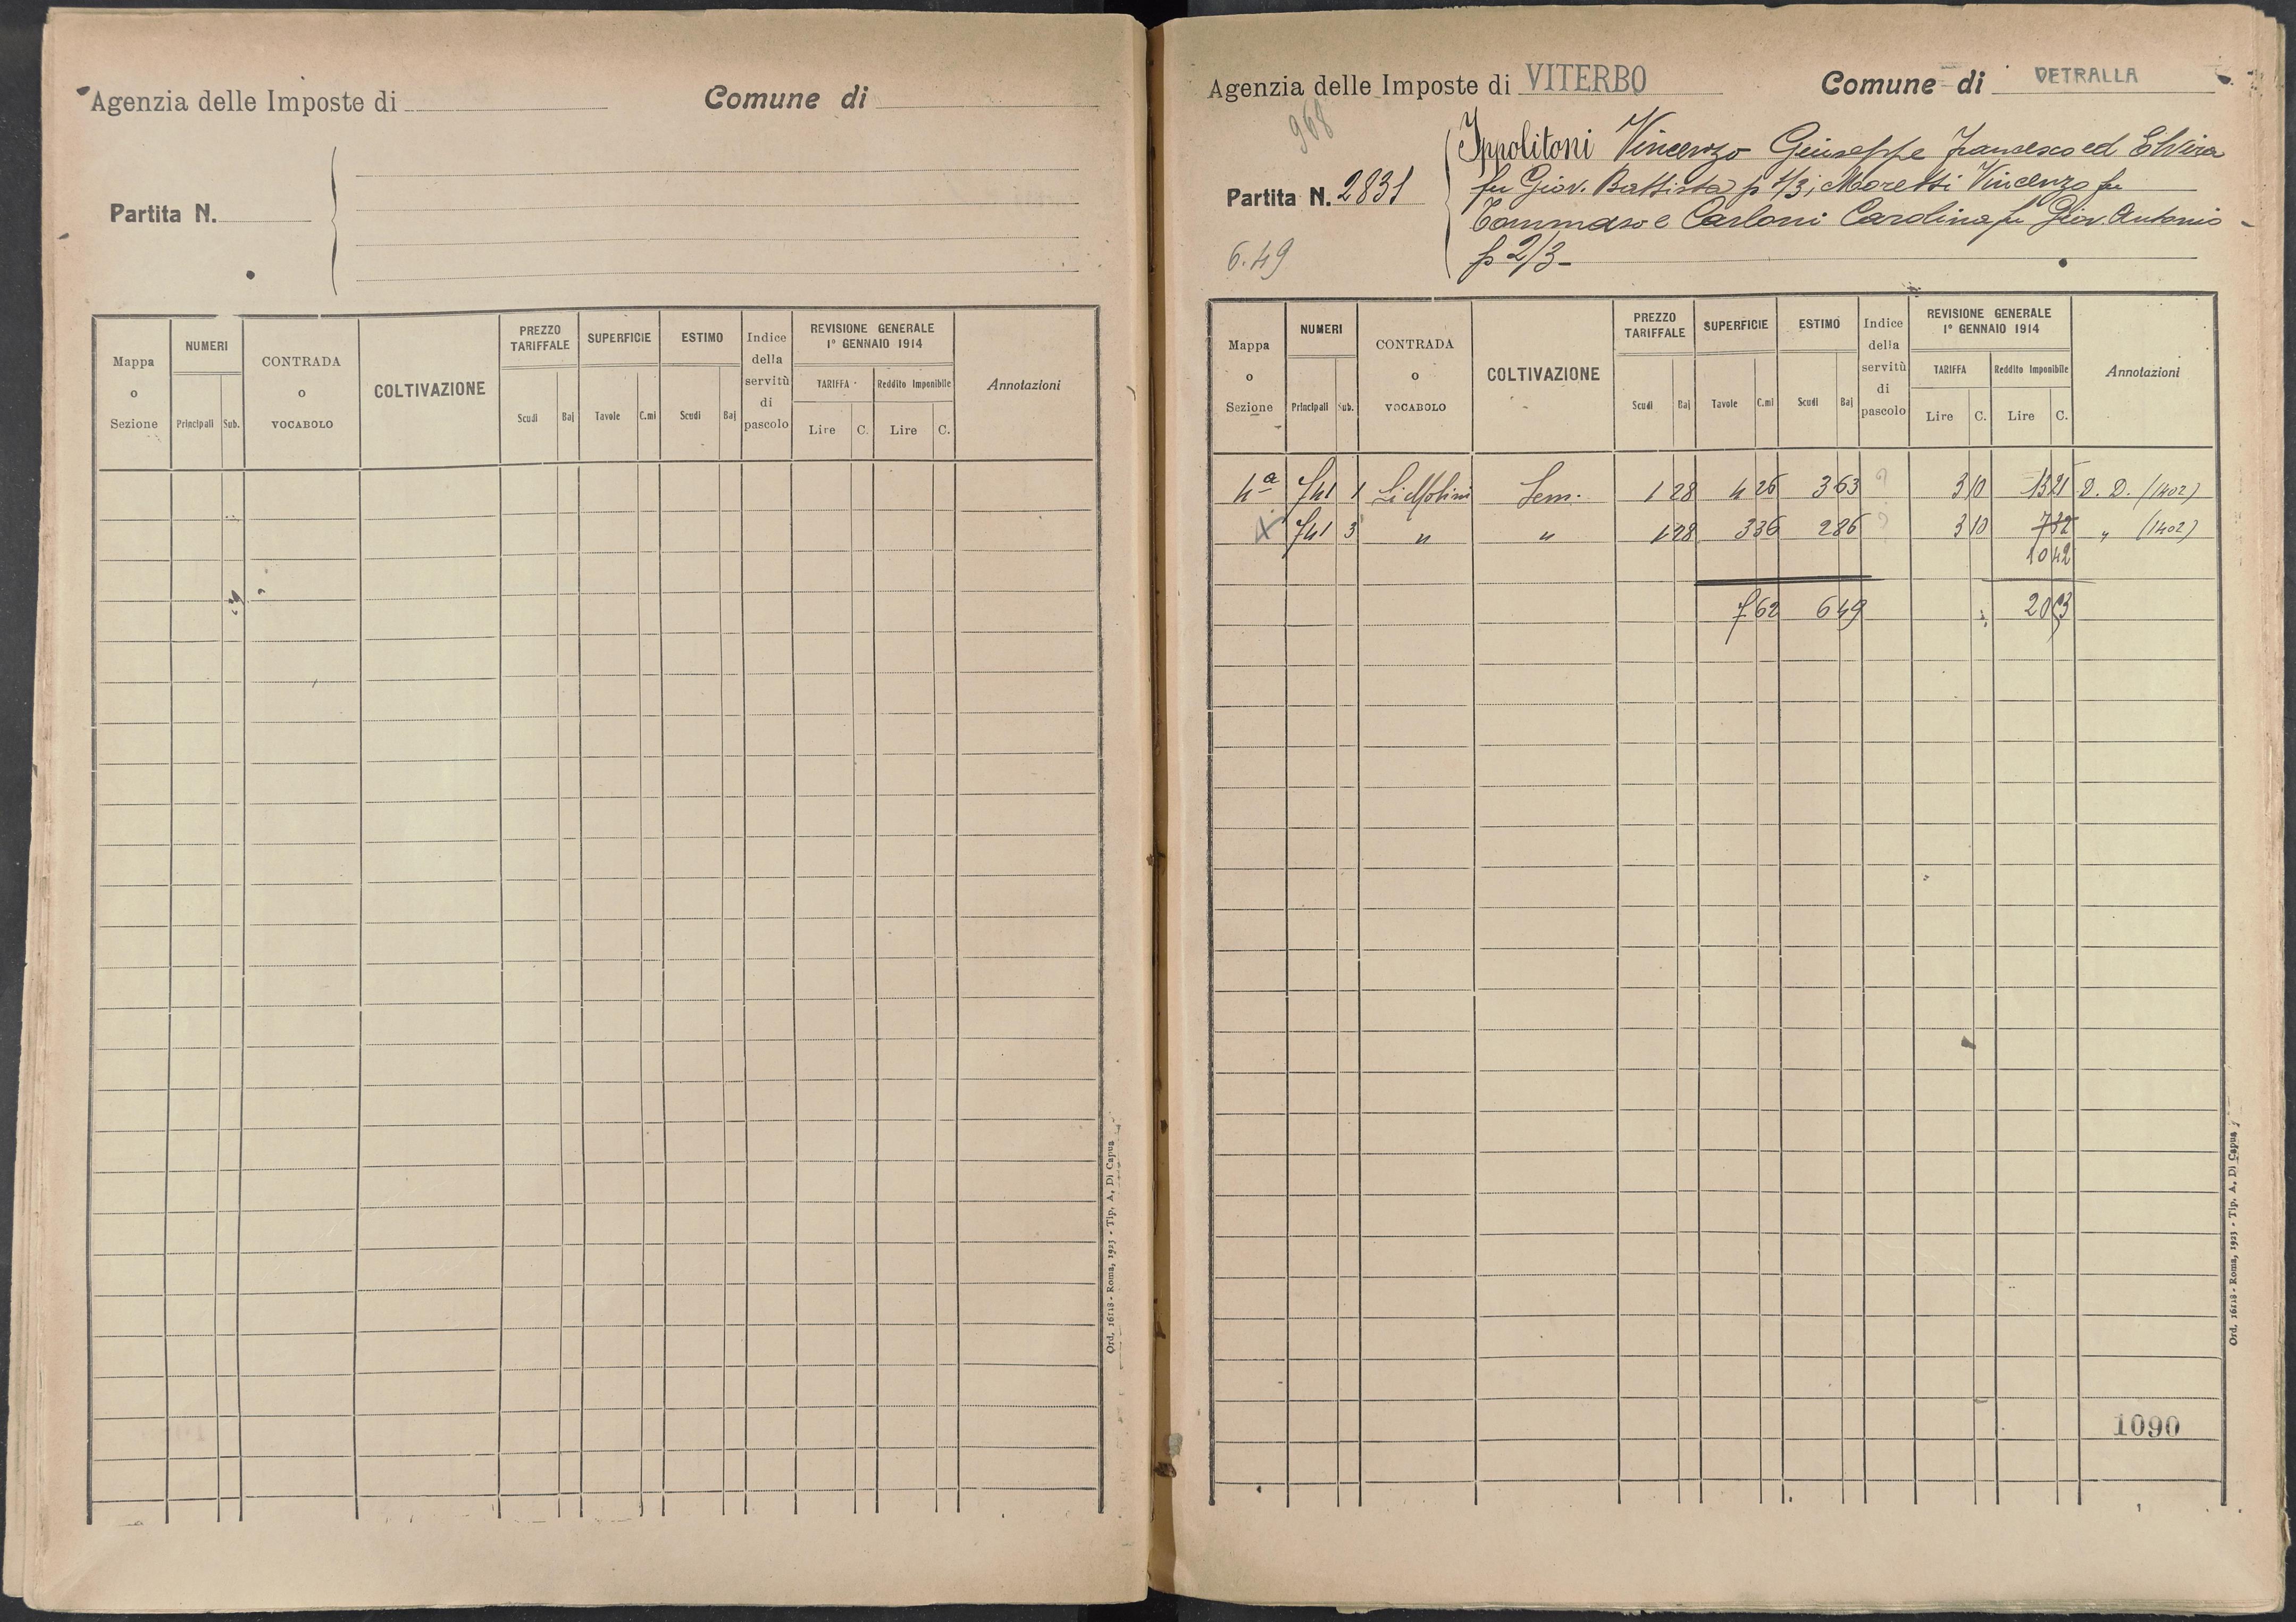 Agenzia delle Imposte di
Comune di
Partita N.
Mappa o Sezione
NUMERI
Principali Sub.
CONTRADA o VOCABOLO
COLTIVAZIONE
PREZZO TARIFFALE
Scudi Baj
SUPERFICIE
Tavole C.mi
ESTIMO
Scudi Baj
Indice della servitù di pascolo
REVISIONE GENERALE
1° GENNAIO 1914
TARIFFA Reddito Imponibile
Lire C. Lire C.
Annotazioni
Ord. 16118 - Roma, 1923 - Tip. A. Di Capua
Agenzia delle Imposte di VITERBO
Comune di VETRALLA
968
Partita N. 2831
6.49
Ippolitoni Vincenzo Giuseppe Francesco ed Elvira
fu Giov. Battista p 1/3; Moretti Vincenzo fu
Tommaso e Carloni Carolina fu Giov. Antonio
p 2/3
Mappa o Sezione
NUMERI
Principali Sub.
CONTRADA o VOCABOLO
COLTIVAZIONE
PREZZO TARIFFALE
Scudi Baj
SUPERFICIE
Tavole C.mi
ESTIMO
Scudi Baj
Indice della servitù di pascolo
REVISIONE GENERALE
1° GENNAIO 1914
TARIFFA Reddito Imponibile
Lire C. Lire C.
Annotazioni
4a 741 1 Sem. 1 28 4 26 3 63 3 10 13 21 D. D. (1402)
741 3 " " 1 28 3 36 2 86 3 10 7 32 " (1402)
10 42
7 62 6 49
1090
Ord. 16118 - Roma, 1923 - Tip. A. Di Capua